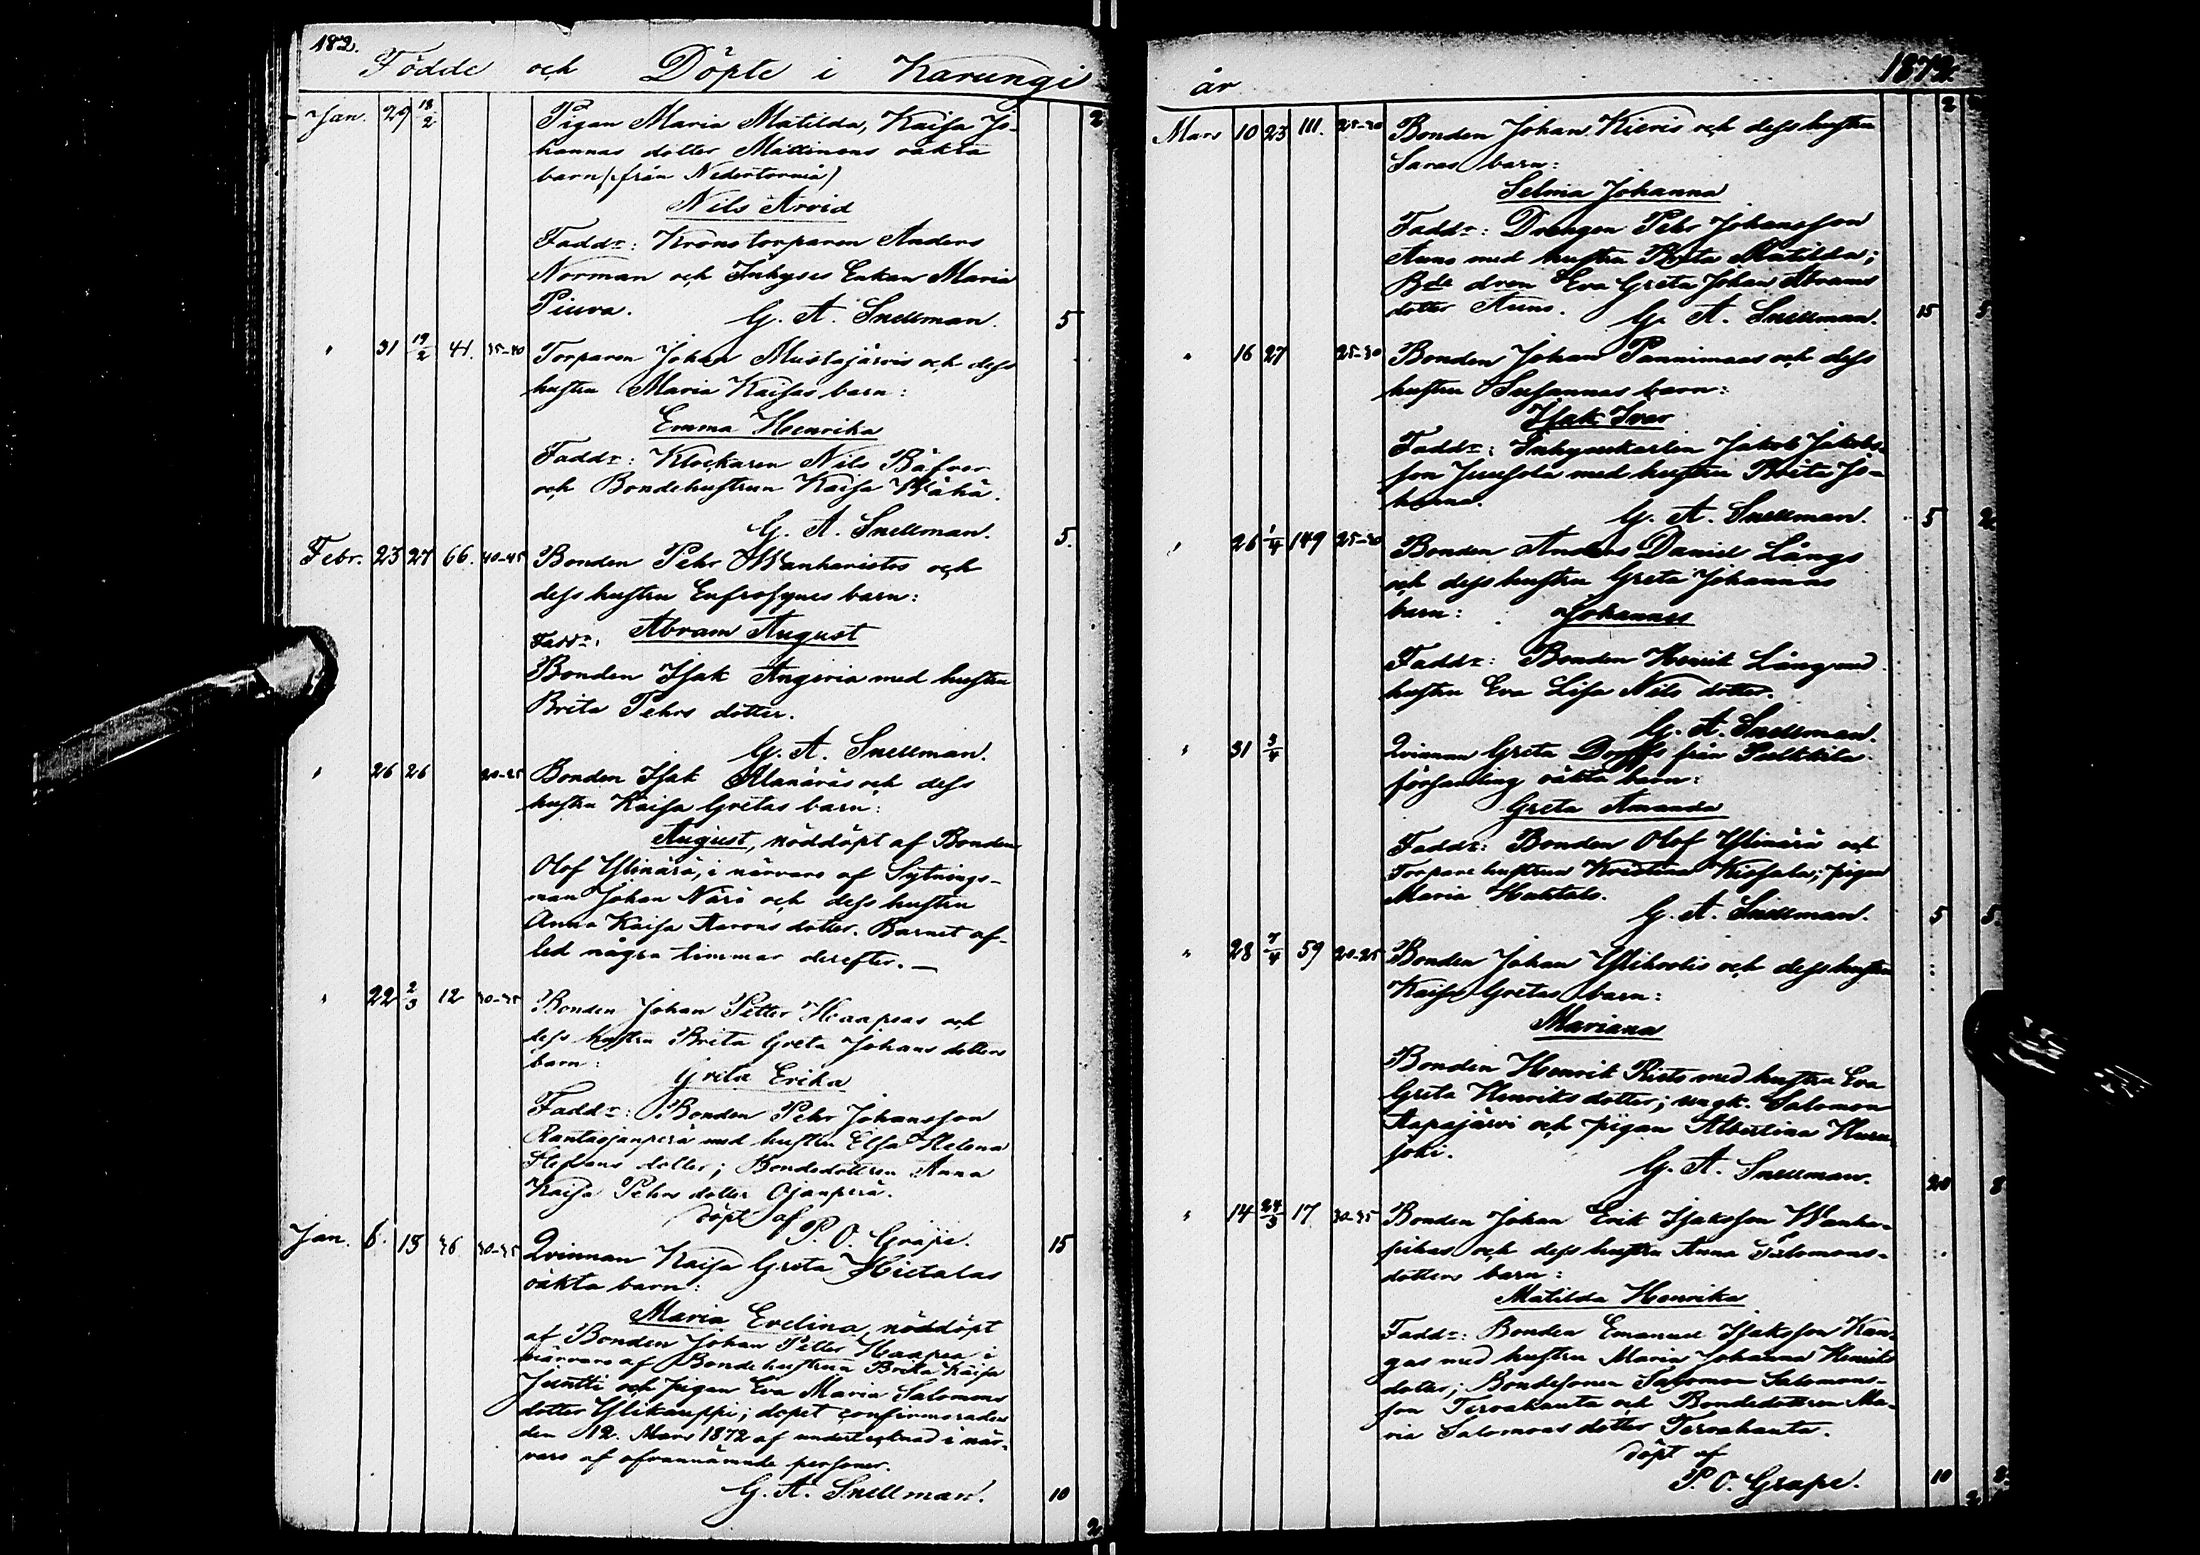 182.
Födde och Döpte i Karungi
Jan. 29 18/2 Pigan Maria Matilda, Kaisa Jo-
hannas dotter Mättinens oäkta
barn (från Nedertorneå)
Nils Arvid
Faddr: Kronotorparen Anders
Norman och Inhyses Enkan Maria
Piuva.
G. A. Snellman. 5
" 31 19/2 41. 35-40 Torparen Johan Mustajärvis och dess
hustru Maria Kaisas barn:
Emma Henrika
Faddr: Klockaren Nils Bäfver
och Bondehustrun Kaisa Wähä.
G. A. Snellman. 5.
Febr. 23 27 66. 40-45 Bonden Pehr Wanharistos och
dess hustru Eufrosynes barn:
Faddr: Abram August
Bonden Isak Angeria med hustru
Brita Pehrs dotter.
G. A. Snellman.
" 26 26 20-25 Bonden Isak Alanäräs och dess
hustru Kaisa Gretas barn:
August, nöddöpt af Bonden
Olof Ylinärä, i närvaro af Sytnings-
man Johan Närä och dess hustru
Anna Kaisa Aarons dotter. Barnet af-
led några timmar derefter.—
" 22 2/3 12 30-35 Bonden Johan Petter Haapeas och
dess hustru Brita Greta Johans dotters
barn:
Greta Erika
Faddr: Bonden Pehr Johansson
Rantaojanperä med hustru Elsa Helena
Stefans dotter; Bondedottren Anna
Kaisa Pehrs dotter Ojanperä.
döpt af
P. O. Grape. 15
Jan. 6. 13 36 30-35 Qvinnan Kaisa Greta Hietalas
oäkta barn:
Maria Evelina, nöddöpt
af Bonden Johan Petter Haapea i
närvaro af Bondehustrun Brita Kaisa
Juntti och pigan Eva Maria Salomons
dotter Ylikauppi; dopet confirmerades
den 12. Mars 1872 af undertecknad i när-
varo af ofvannämnde personer.
G. A. Snellman. 10
år 1872.
Mars 10 23 111. 25-30 Bonden Johan Kieris och dess hustru
Saras barn:
Selma Johanna
Faddr: Drängen Pehr Johansson
Auno med hustru Brita Matilda;
Bde dren Eva Greta Johan Abrams
dotter Auno.
G. A. Snellman. 15 5
" 16 27 25-30 Bonden Johan Pannimaas och dess
hustru Susannas barn:
Isak Ivar
Faddr: Inhyseskarlen Jakob Jakobs-
son Juusola med hustru Brita Jo-
hanna.
G. A. Snellman. 5 2
" 26 1/4 149 25-30 Bonden Anders Daniel Långs
och dess hustru Greta Johannas
barn: Johannes
Faddr: Bonden Henrik Lång med
hustru Eva Lisa Nils dotter.
G. A. Snellman.
" 31 3/4 Qvinnan Greta från
församling oäkta barn:
Greta Amanda
Faddr: Bonden Olof Ylinärä och
Torpare hustrun Kristina; pigan
Maria Hietala.
G. A. Snellman. 5 5
" 28 7/4 59 20-25 Bonden Johan och dess hustru
Kaisa Gretas barn:
Mariana
Bonden Henrik Risto med hustru Eva
Greta Henriks dotter; ungk. Salomon
Aapajärvi och pigan Albertina
joki.
G. A. Snellman. 20 8
" 14 24/3 17 30-35 Bonden Johan Erik Isaksson Wanha-
pihas och dess hustru Anna Salomons-
dotters barn:
Matilda Henrika
Faddr: Bonden Emanuel Isaksson Kan-
gas med hustru Maria Johanna Henriks
dotter; Bondesonen Salomon Salomons-
son Tervahauta och Bondedottren Ma-
ria Salomons dotter Tervahauta.
döpt af
P. O. Grape. 10 8